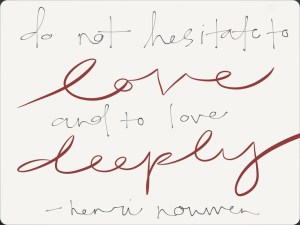 do not hesitate to
love
and to love
deeply
- henri nouwen